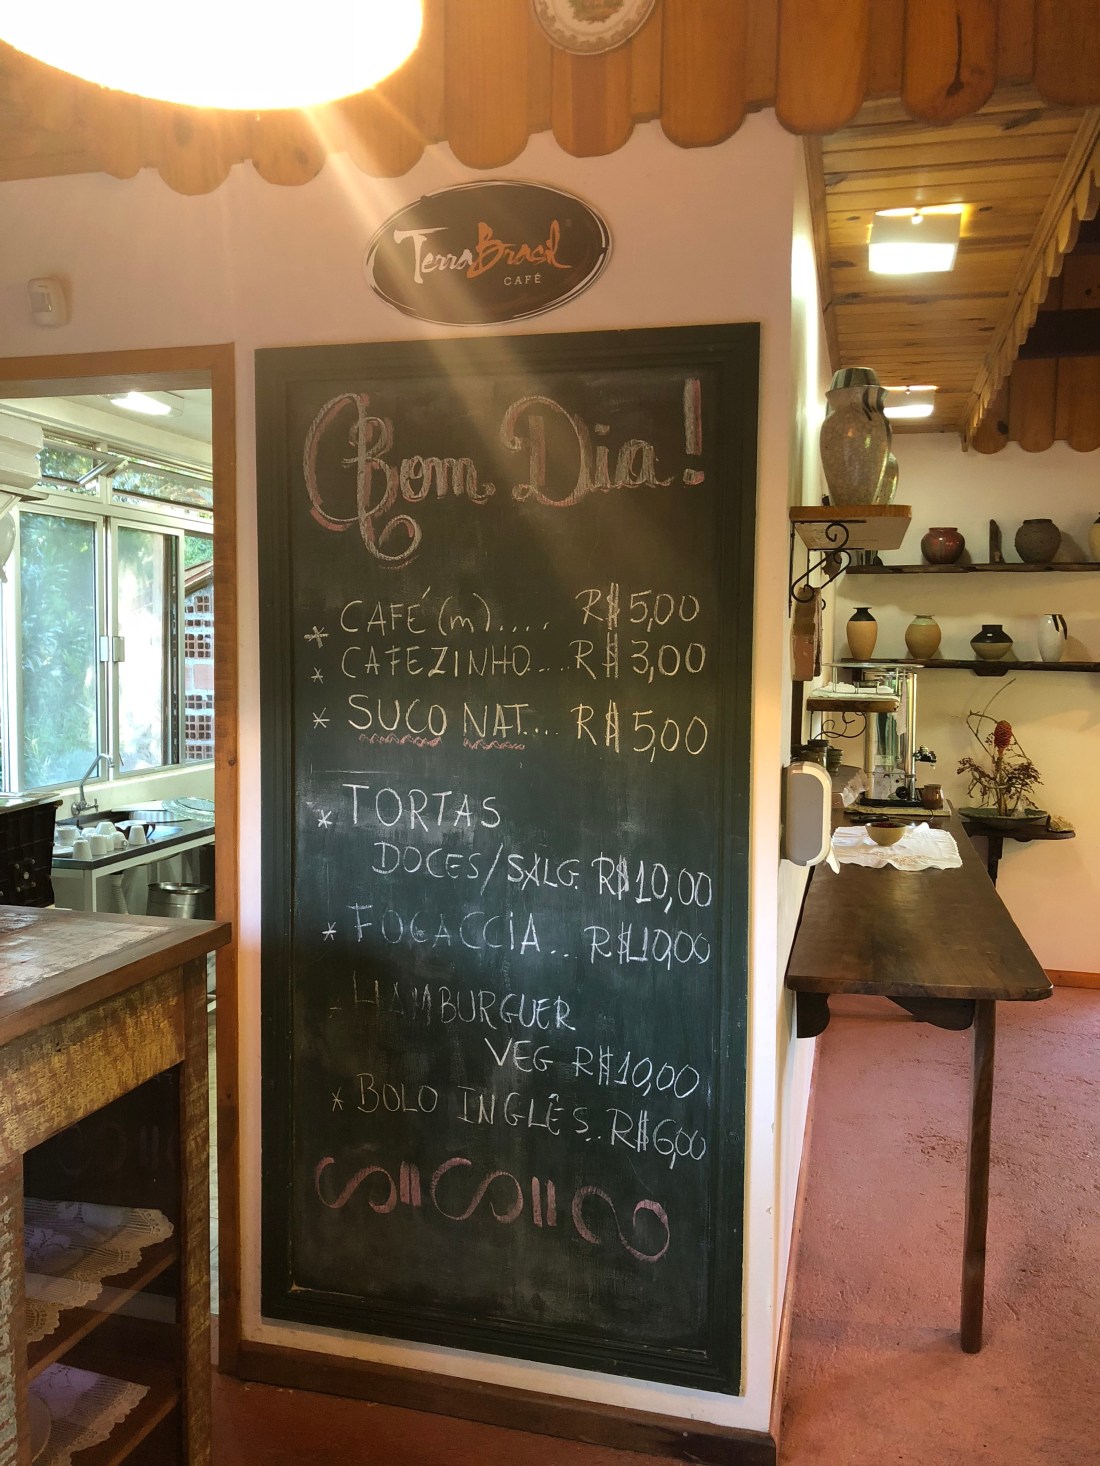 TerraBrasil
CAFÉ
Bom Dia!
* CAFÉ (m).... R$ 5,00
* CAFEZINHO.... R$ 3,00
* SUCO NAT.... R$ 5,00
* TORTAS
DOCES/SALG. R$ 10,00
* FOCACCIA... R$ 10,00
* HAMBURGUER
VEG R$ 10,00
* BOLO INGLÊS.. R$ 6,00